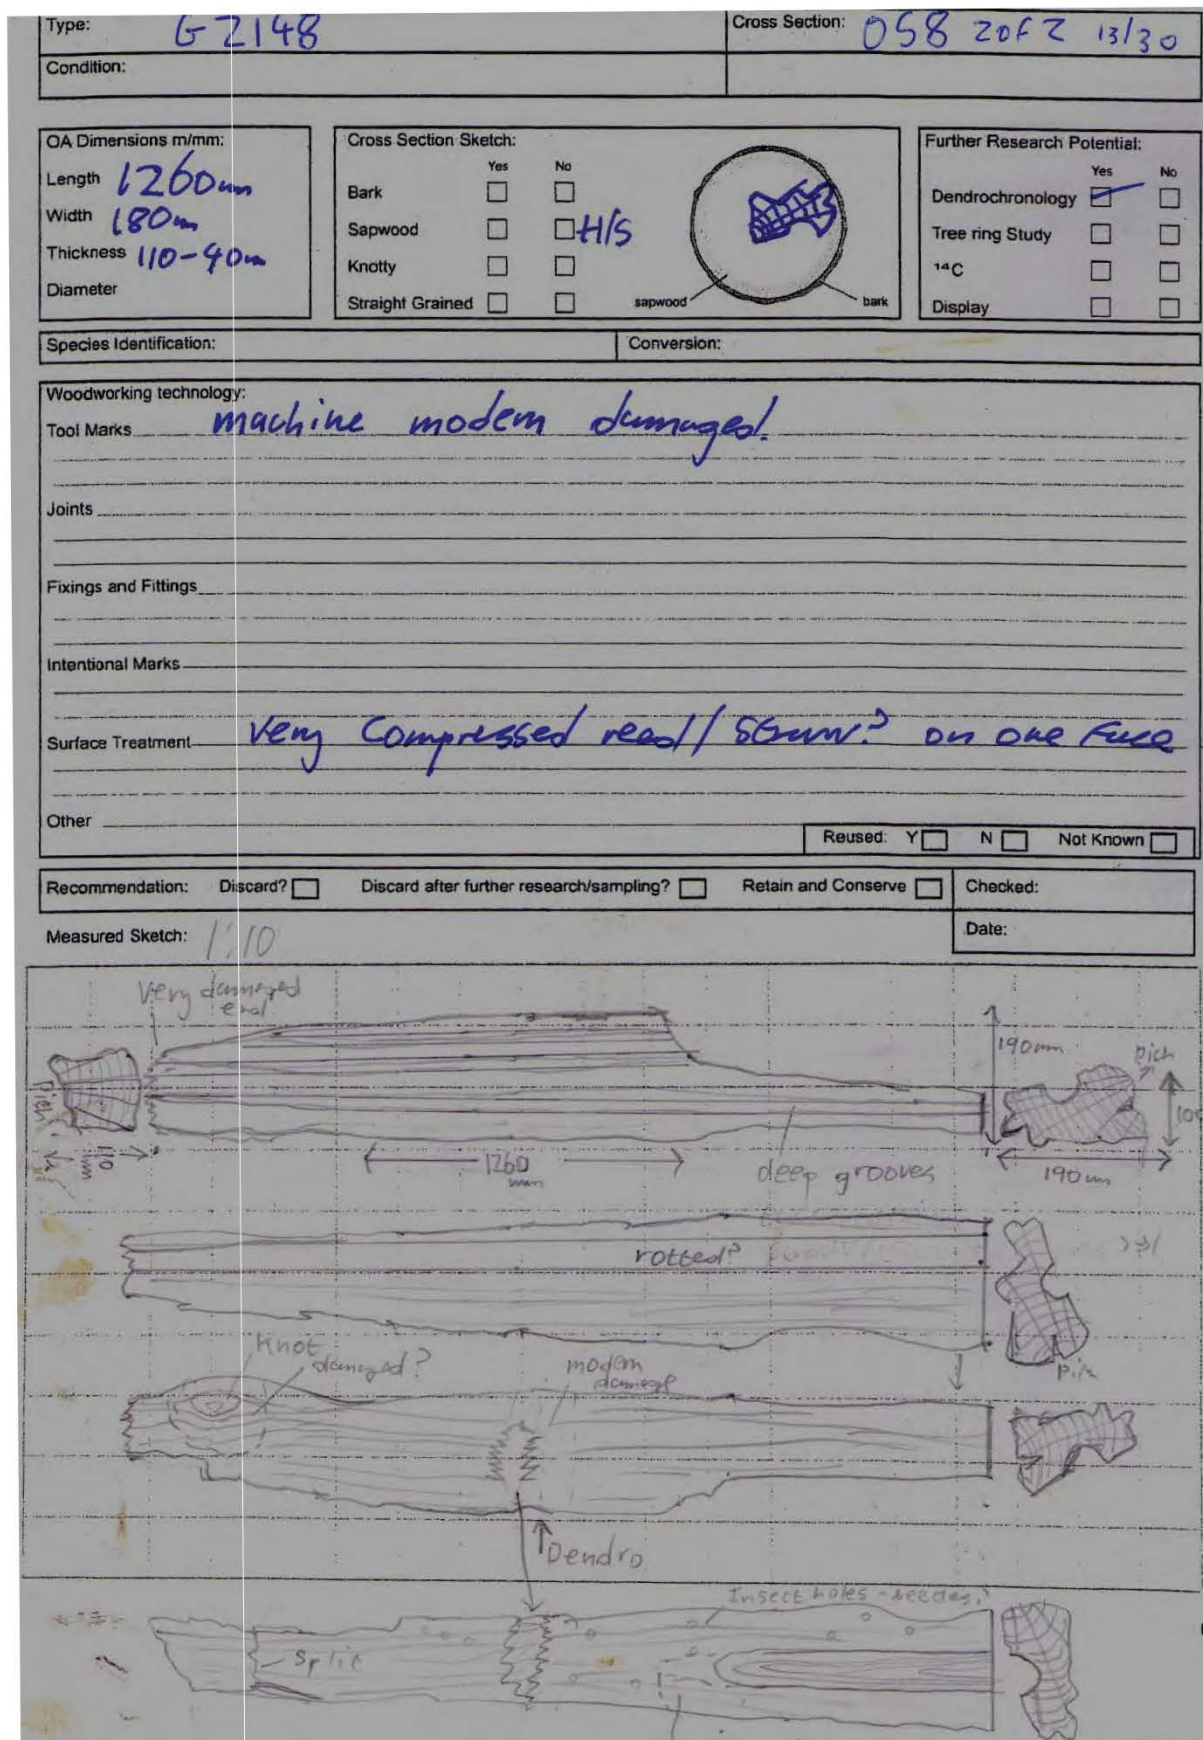 Type: G2148 Cross Section: 058 2 OF 2 13/30
Condition:
OA Dimensions m/mm:
Length 1260mm
Width 180mm
Thickness 110-40mm
Diameter
Cross Section Sketch:
Yes No
Bark
Sapwood H/S
Knotty
Straight Grained
sapwood bark
Further Research Potential:
Yes No
Dendrochronology
Tree ring Study
¹⁴C
Display
Species Identification: Conversion:
Woodworking technology:
Tool Marks machine modern damaged.
Joints
Fixings and Fittings
Intentional Marks
Surface Treatment very compressed reed// straw? on one face
Other
Reused: Y N Not Known
Recommendation: Discard? Discard after further research/sampling? Retain and Conserve Checked:
Measured Sketch: 1:10 Date:
Very damaged
end
190mm
Pith
Pith
110
mm
1260
mm
deep grooves
190mm
rotted?
Knot
damaged?
modern
damage
Dendro
Insect holes - beetles?
Split